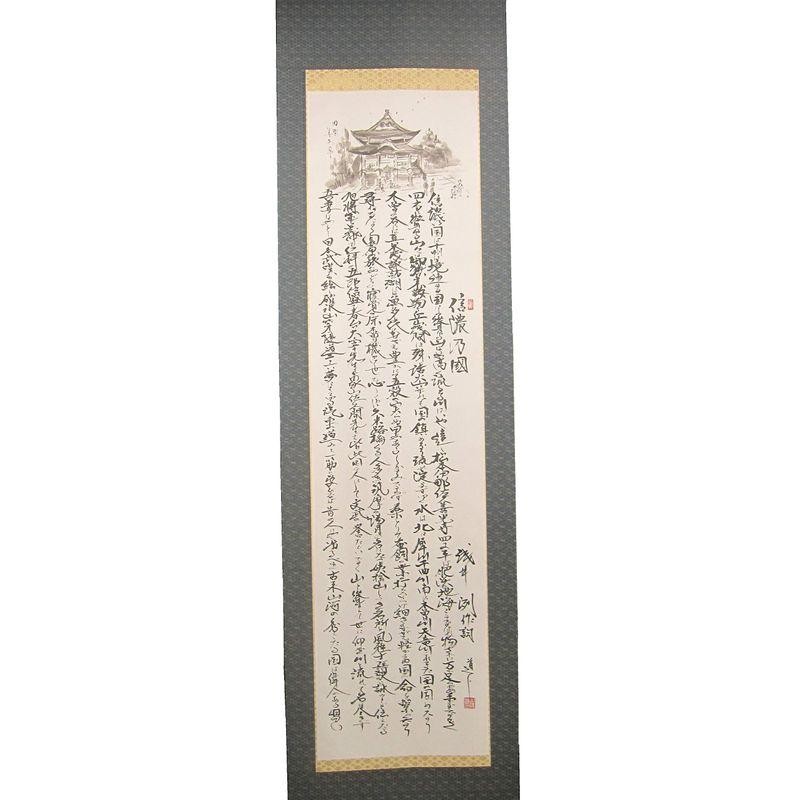 信濃乃國
浅井 洌 作詞
信濃の国は十州に境連ぬる国にして聳ゆる山はいや高く流るる川はいや遠し松本伊那佐久善光寺四つの平は肥沃の地海こそなけれ物さわに万足らわぬ事ぞなき
四方に聳ゆる山々は御嶽乗鞍駒ヶ岳浅間は殊に活火山いずれも国の鎮めなり流れ淀まずゆく水は北に犀川千曲川南に木曽川天竜川これまた国の固めなり
木曽の谷には真木茂り諏訪の湖には魚多し民のかせぎも豊かにて五穀の実らぬ里やあるしかのみならず桑とりて蚕飼いの業の打ちひらけ細きよすがも軽からぬ国の命を繋ぐなり
尋ねまほしき園原や旅のやどりの寝覚の床木曽の桟かけし世も心してゆけ久米路橋くる人多き筑摩の湯月の名にたつ姨捨山しるき名所と風雅士が詩歌に詠てぞ伝えたる
旭将軍義仲も仁科の五郎信盛も春台太宰先生も象山佐久間先生も皆此国の人にして文武の誉たぐいなく山と聳えて世に仰ぎ川と流れて名は尽ず
吾妻はやとし日本武嘆き給いし碓氷山穿つ隧道二十六夢にもこゆる汽車の道みち一筋に学びなば昔の人にや劣るべき古来山河の秀でたる国は偉人のある習い